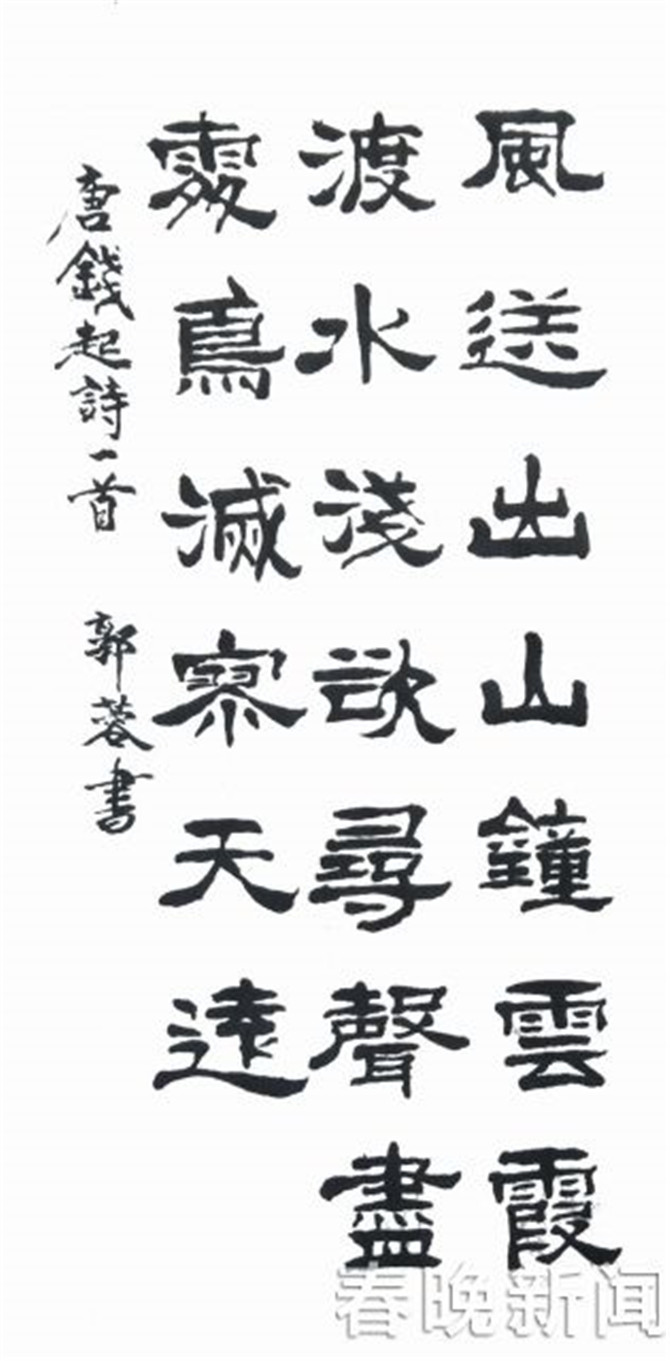 風送出山鐘雲霞
渡水淺欲尋聲盡
處鳥滅寥天遠
唐錢起詩一首 郭蓉書
春晚新闻